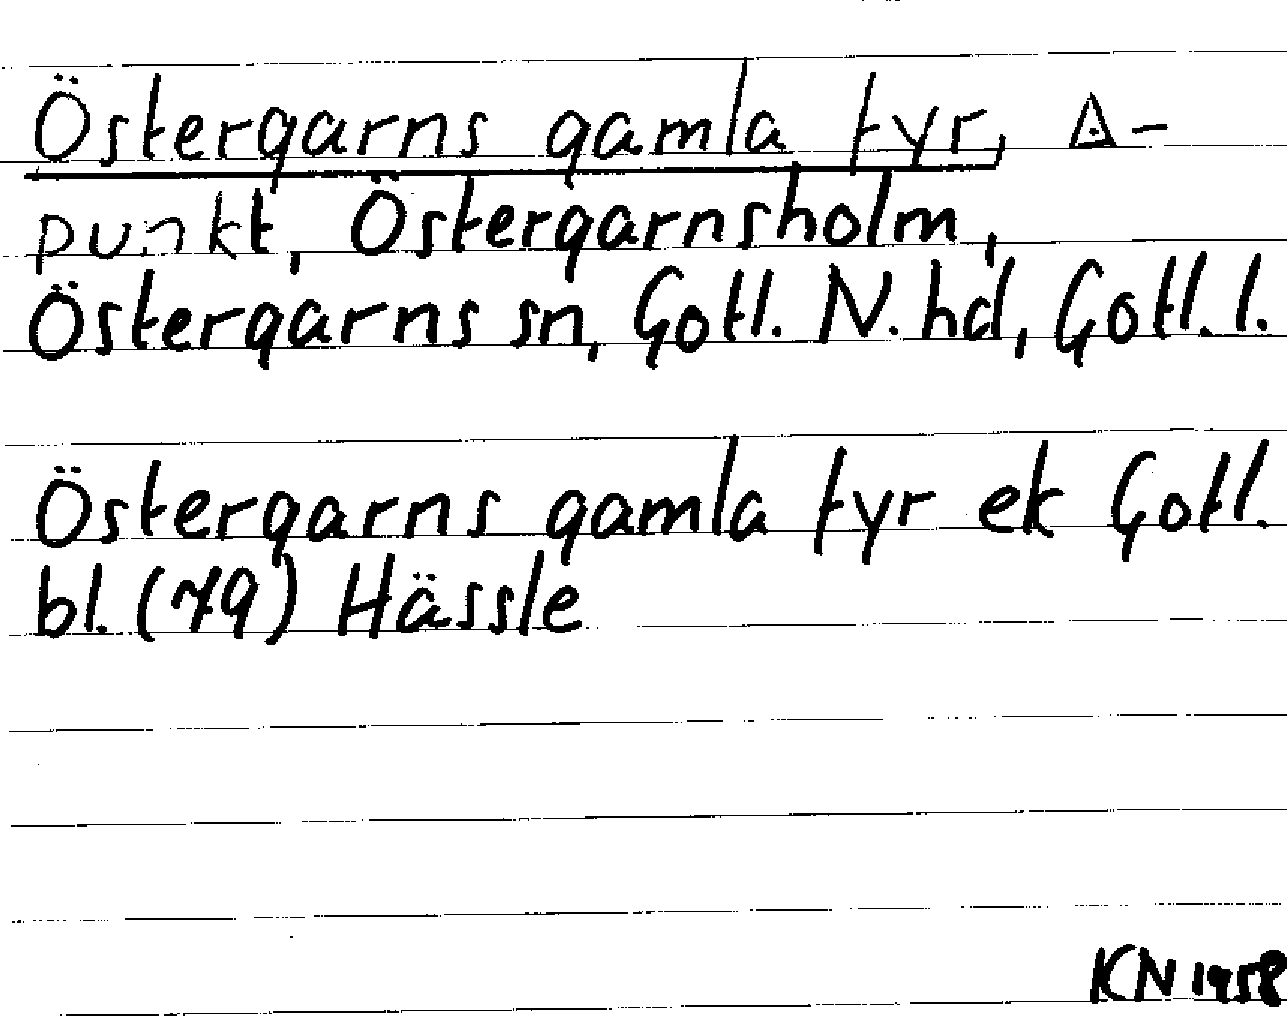 Östergarns gamla fyr, △-
punkt, Östergarnsholm,
Östergarns sn, Gotl. N. hd, Gotl. l.
Östergarns gamla fyr ek Gotl.
bl. (79) Hässle
KN 1958